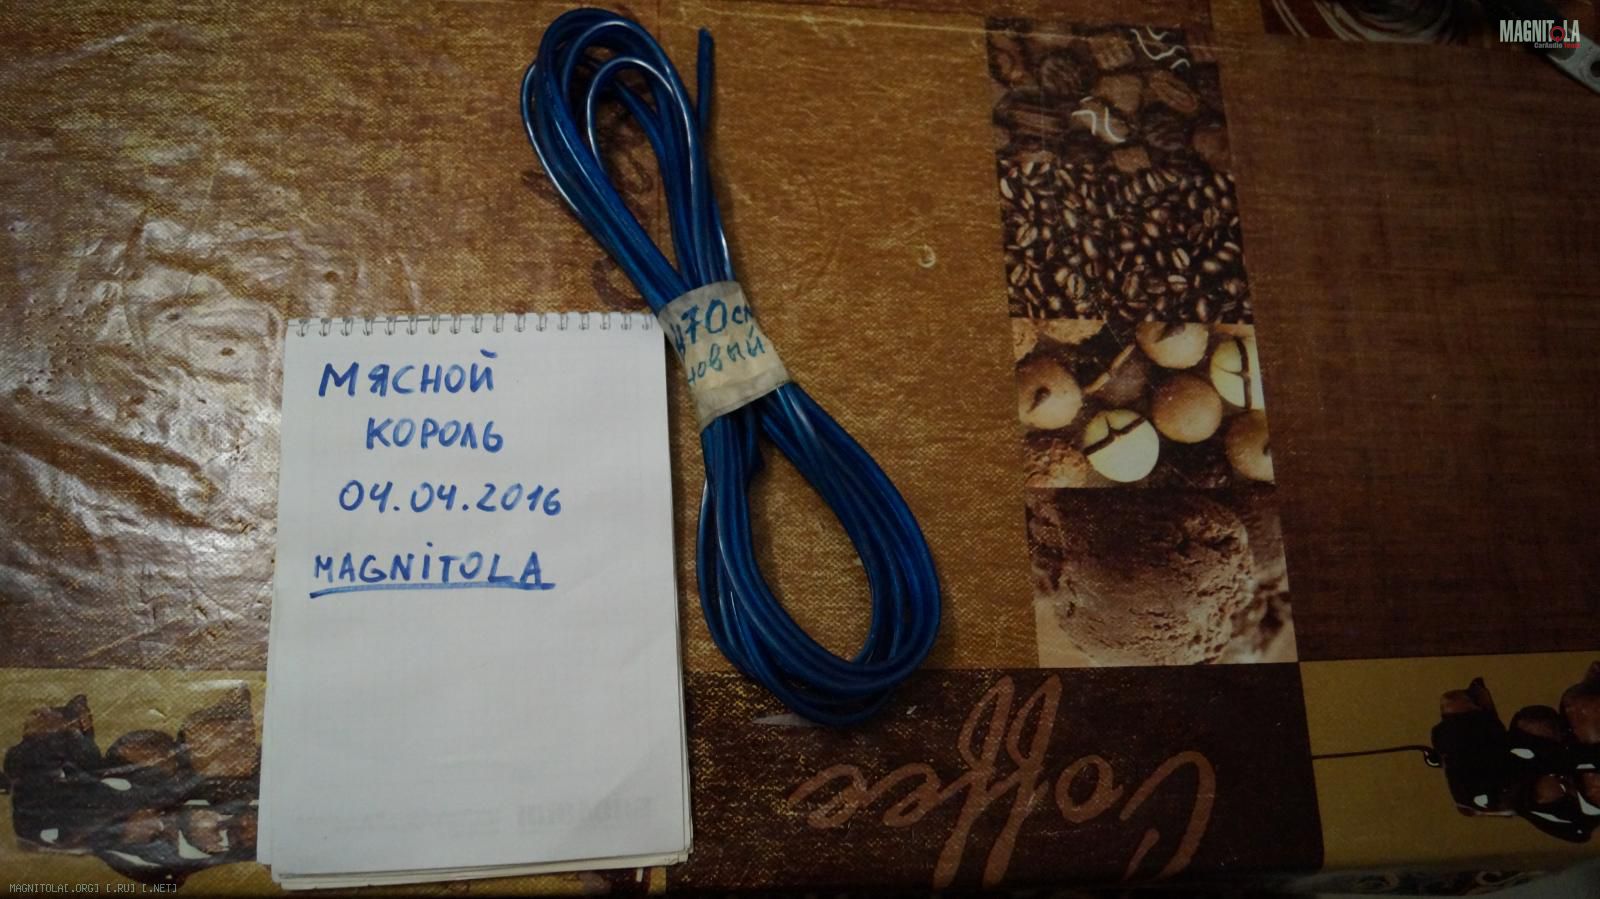 MAGNITOLA
CarAudio Team
470см
новый
МЯСНОЙ
КОРОЛЬ
04.04.2016
MAGNiTOLA
Coffee
MAGNITOLA[.ORG] [.RU] [.NET]